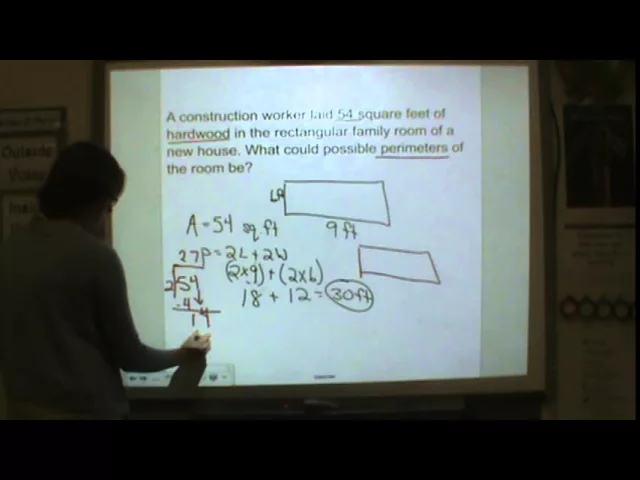 A construction worker laid 54 square feet of
hardwood in the rectangular family room of a
new house. What could possible perimeters of
the room be?
A = 54 sq. ft
9 ft
P = 2L + 2W
(2x9) + (2x6)
18 + 12 = 30ft
27
2 54
-4
14
Outside